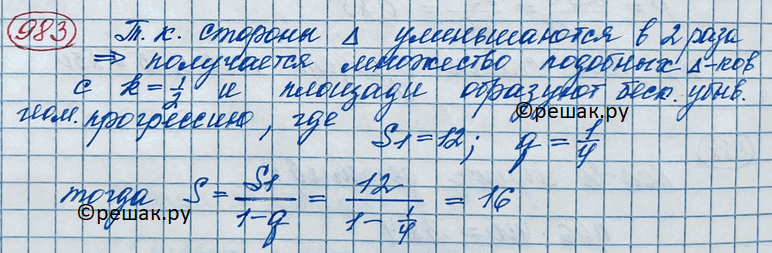 983 Т. к. стороны Δ уменьшаются в 2 раза
⇒ получается множество подобных Δ-ков
с k = 1/2 и площади образуют беск. убыв.
©решак.ру
геом. прогрессию, где S1 = 12; q = 1/4
тогда S = S1/(1-q) = 12/(1 - 1/4) = 16
©решак.ру